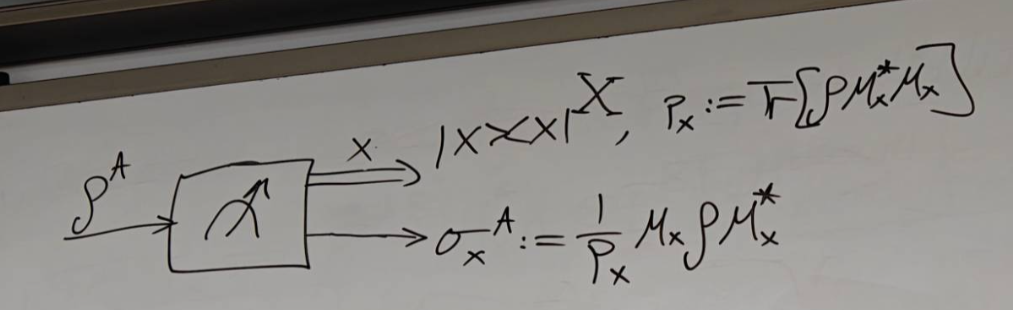 ρ^A
x |x><x|^X, p_x := Tr[ρ M_x^* M_x]
σ_x^A := 1/p_x M_x ρ M_x^*